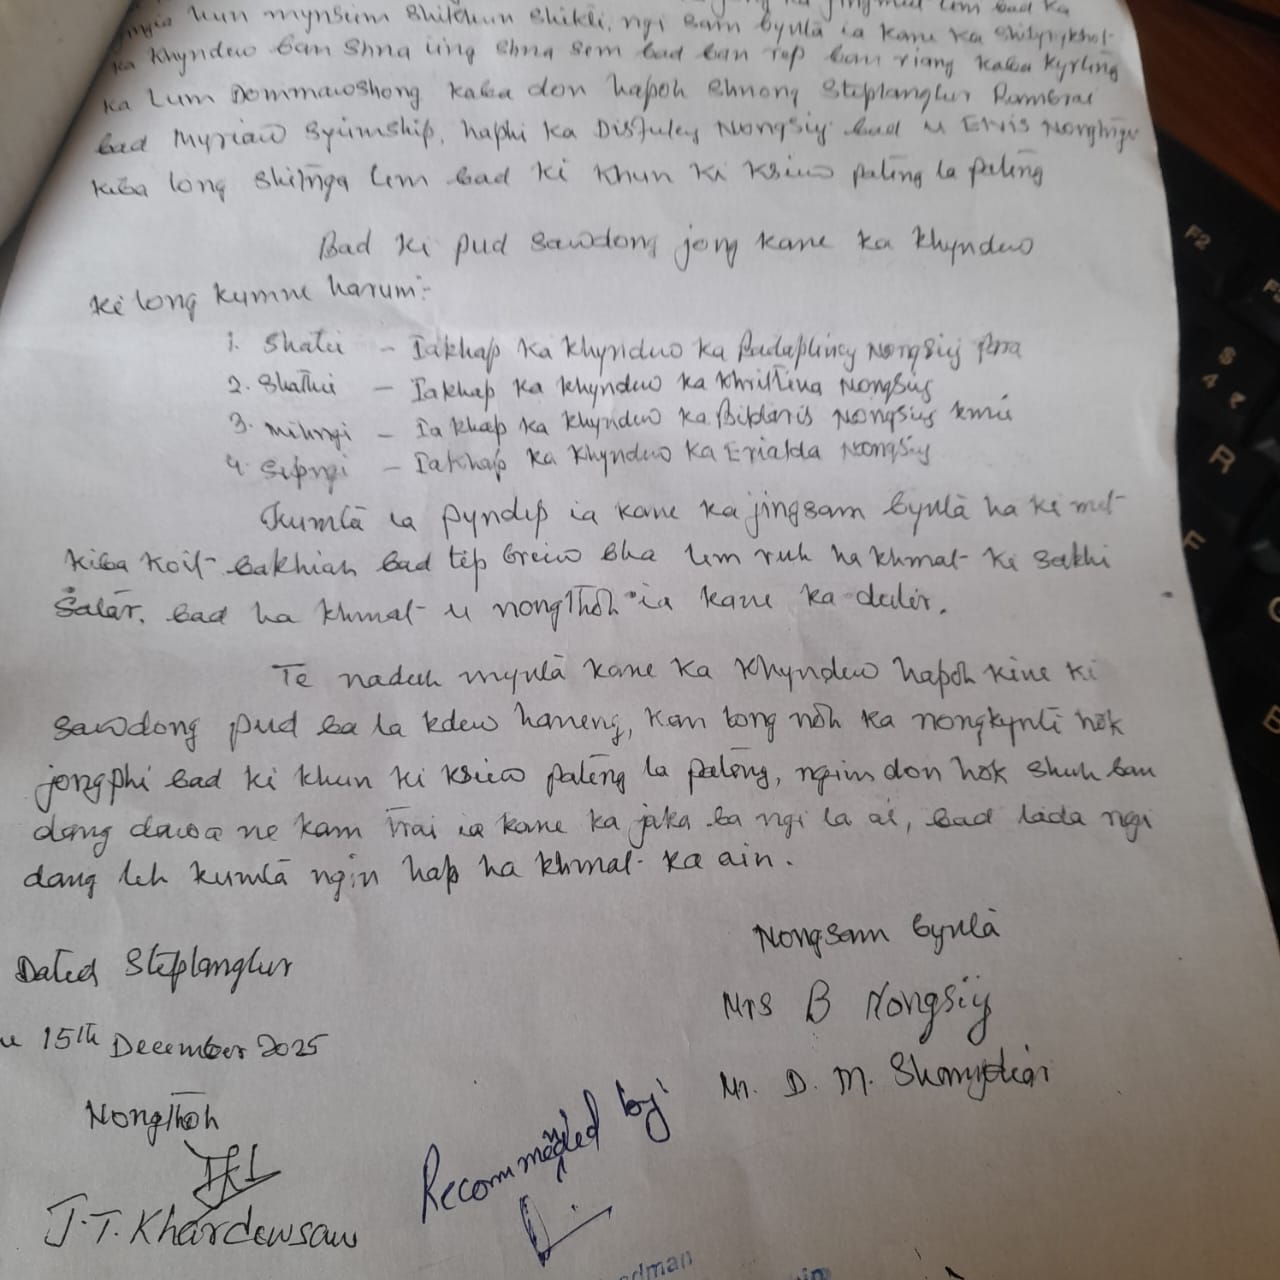 hun mynsiem shikhun shikti, ngi sam bynta ia kane ka shilynkhot
ka khyndew ban shna iing shna sem bad ban rep ban riang kaba kyrteng
ka Lum Dommawshong kaba don hapoh Shnong Steplanglur Rambrai
bad Myriaw Syiemship, haphi ka Disfuley Nongsiy bad u Elvis
kiba long shitnga lem bad ki khun ki ksiew pateng la pateng
Bad ki pud sawdong jong kane ka khyndew
ki long kumne harum:-
1. Shatei - Iakhap ka khyndew ka Nongsiej
2. Shathii - Iakhap ka khyndew ka Khristina Nongsiej
3. Mihngi - Ia khap ka khyndew ka Biklaris Nongsiej kmie
4. Sepngi - Iakhap ka khyndew ka Erialda Nongsiy
Kumtā ia pyndep ia kane ka jingsam bynta ha ki met
kiba koit bakhiah bad tip briew bha lem ruh ha khmat ki sakhi
Salār. bad ha khmat u nongthoh ia kane ka dulir.
Te naduh mynta kane ka khyndew hapoh kine ki
sawdong pud ba la kdew haneng, kan long noh ka nongkynti hok
jongphi bad ki khun ki ksiew pateng la pateng, ngim don hok shuh ban
dang dawa ne kam trai ia kane ka jaka ba ngi la ai, bad lada ngi
dang leh kumtā ngin hap ha khmat ka ain.
Nongsam bynta
Dated Steplanglur
Mrs B Nongsiy
u 15th December 2025
Mr. D. M.
Nongthoh
Recommended by:
J.T. Khardewsaw